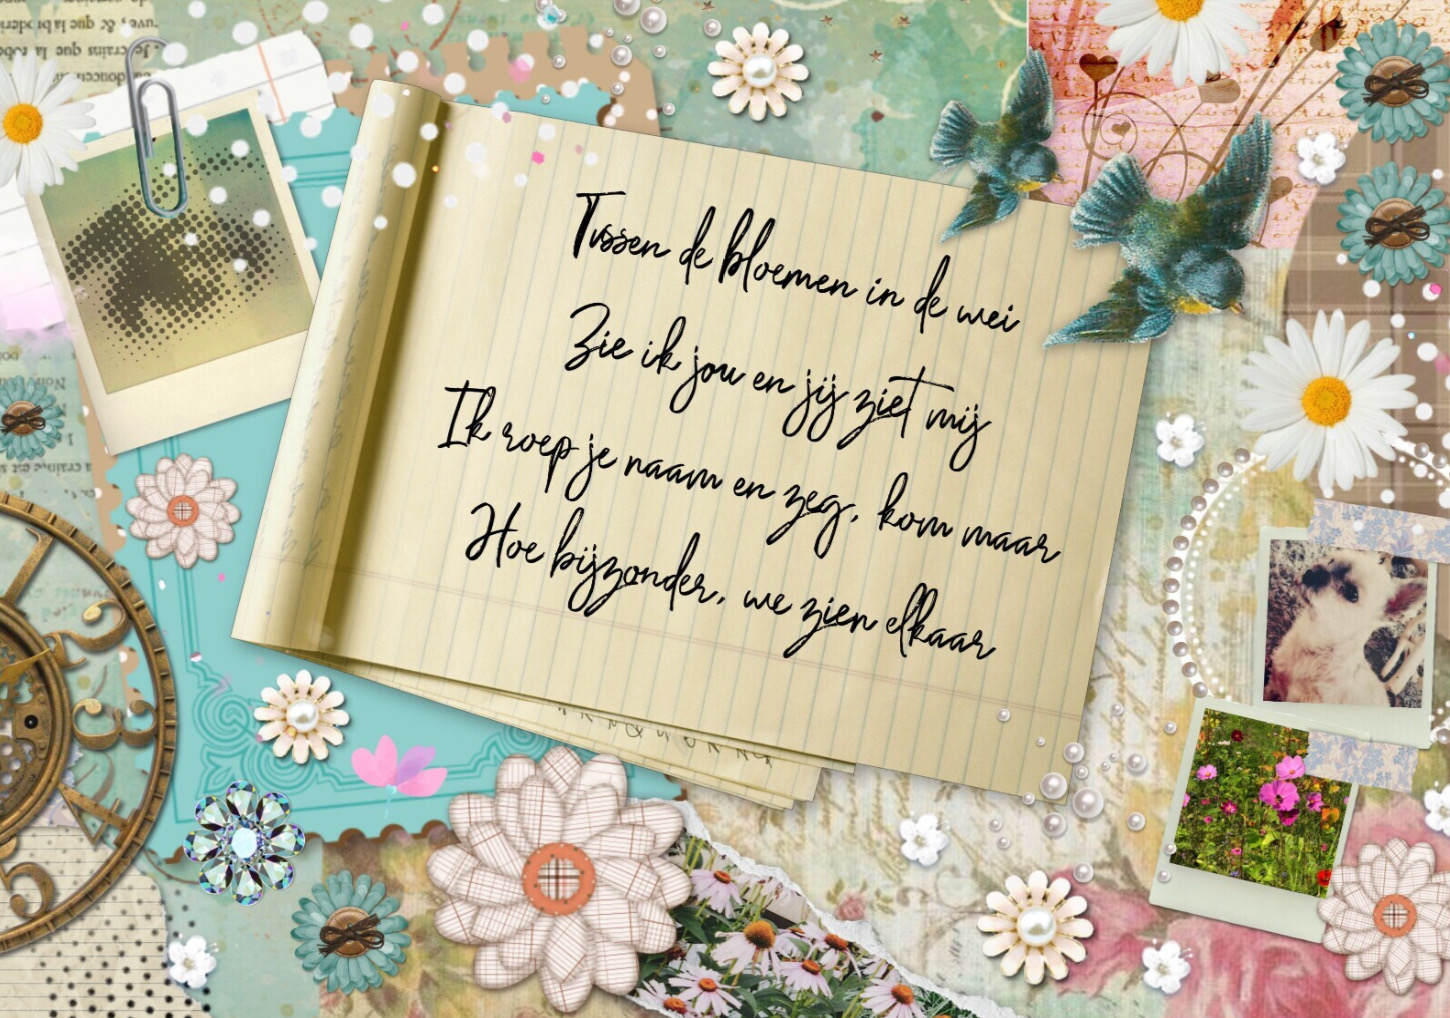 Tussen de bloemen in de wei
Zie ik jou en jij ziet mij
Ik roep je naam en zeg, kom maar
Hoe bijzonder, we zien elkaar